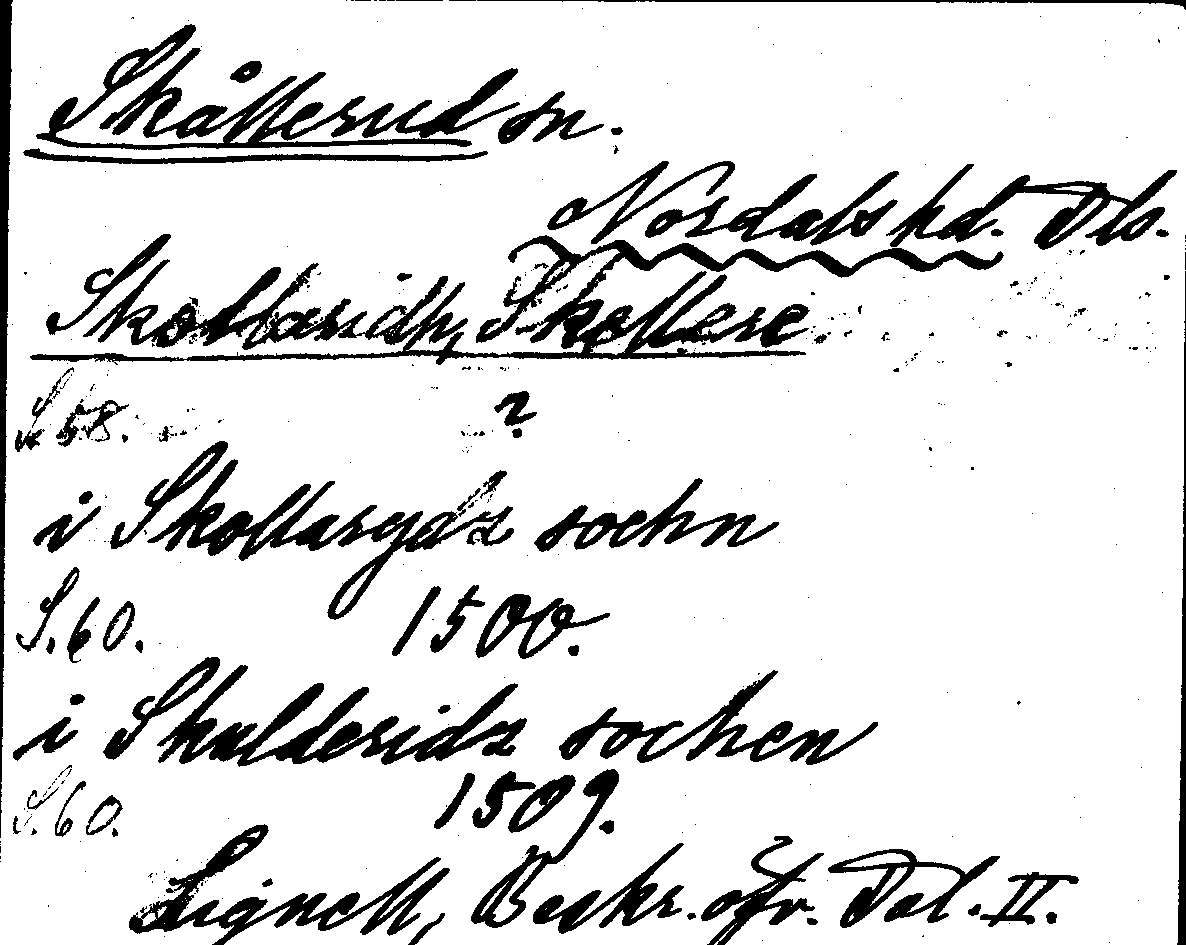 Skållerud sn.
Nordals hd. Dls.
Skollaridh, Skollere
S. 58. ?
i Skollarydz sochn
S. 60. 1500.
i Skulderidz sochen
S. 60. 1509.
Lignell, Beskr. öfv. Dal. II.